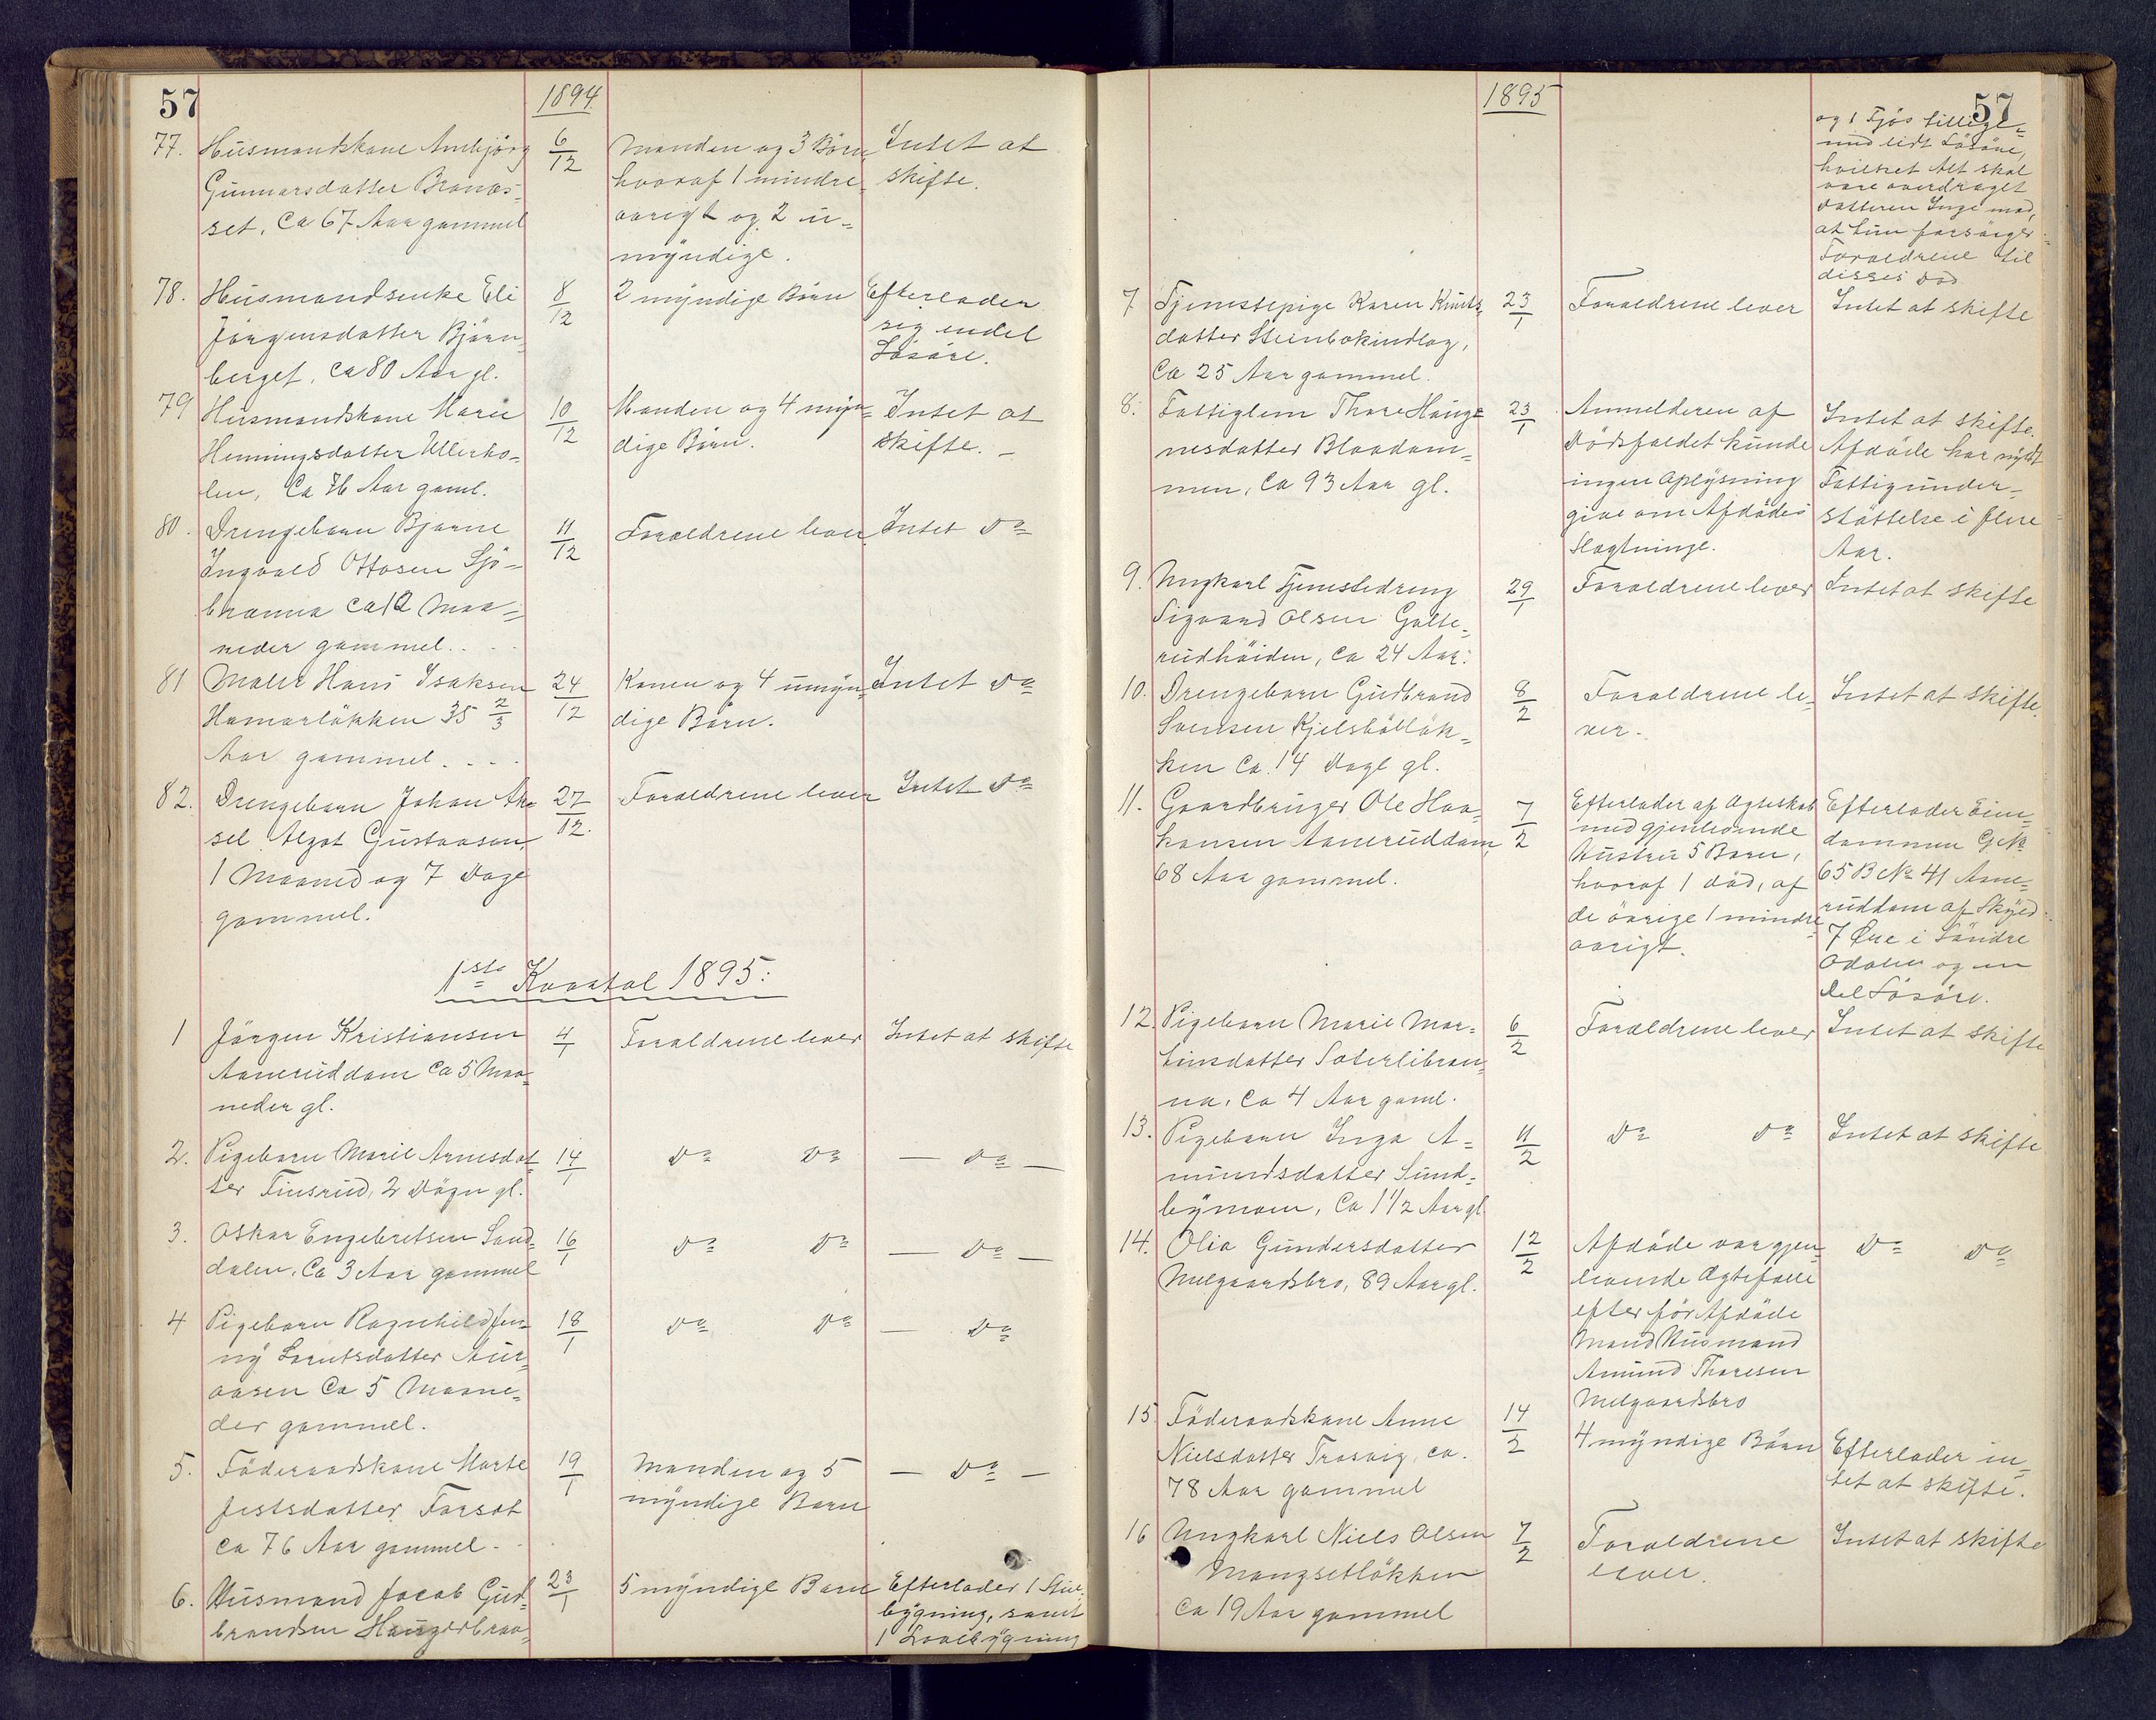 57
1894
77. Husmandskone Ambjörg
Gunnarsdatter Bronas-
set, Ca 67 Aar gammel
6/12
Manden og 3 Börn
hvoraf 1 mindre-
aarigt og 2 u-
myndige.
Intet at
skifte.
78. Husmandsenke Eli
Jörgensdatter Björn-
berget, ca 80 Aar gl.
8/12
2 myndige Börn
Efterlader
sig endel
Lösöre.
79 Husmandskone Marie
Henningsdatter Ullerho-
len, Ca 76 Aar gaml.
10/12
Manden og 4 myn-
dige Börn.
Intet at
skifte. -
80. Drengebarn Bjarne
Ingvald Ottosen Sjö-
branna ca 12 Maa-
neder gammel. . . .
11/12
Foraeldrene lever
Intet Do
81 Maler Hans Isaksen
Hamarlökken 35 2/3
Aar gammel. . . .
24/12
Konen og 4 umyn-
dige Börn.
Intet Do
82. Drengebarn Johan Ak-
sel Algot Gustavsen,
1 Maaned og 7 Dage
gammel.
27/12.
Foraeldrene lever
Intet Do
1ste Kvartal 1895:
1 Jörgen Kristiansen
Aaneruddam Ca 5 Maa-
neder gl.
4/1
Foraeldrene lever
Intet at skifte
2. Pigebarn Marie Arnesdat-
ter Finsrud, 2 Dögn gl.
14/1
Do Do
— Do —
3. Oskar Engebretsen Sand-
dalen, Ca 3 Aar gammel
16/1
Do Do
— Do —
4 Pigebarn Ragnhild Jen-
ny Lorntsdatter Aur-
aasen Ca 5 Maane-
der gammel.
18/1
Do Do
— Do
5. Föderaadskone Marte
Jestsdatter Forsot
Ca 76 Aar gammel -
19/1
Manden og 5
myndige Barn
— Do —
6. Husmand Jacob Gud-
brandsen Haugerbraa-
23/1
5 myndige Barn
Efterlader 1 Stue-
bygning, samt
1 Laavebygning
1895
57
og 1 Fjös tillige-
med lidt Lösöre,
hvilket Alt skal
vare overdraget
Datteren Inge mod,
at hun forsörger
Foraeldrene til
disses Död
7 Tjenestepige Karen Knuts-
datter Steinbakindlag,
Ca 25 Aar gammel.
23/1
Foraeldrene lever
Intet at skifte
8. Fattiglem Thore Hauge-
nesdatter Blaadam-
men, Ca 93 Aar gl.
23/1
Anmelderen af
Dödsfaldet kunde
ingen Oplysning
give om Afdödes
Slagtninge.
Intet at skifte.
Afdöde har nydt
Fattigunder-
stöttelse i flere
Aar.
9. Ungkarl Tjenestedreng
Sigvand Olsen Galte-
rudhöiden, Ca 24 Aar.
29/1
Foraeldrene lever
Intet at skifte
10. Drengebarn Gudbrand
Svensen Kjelsböllök-
ken Ca. 14 Dage gl.
8/2
Foraeldrene le-
ver.
Intet at skifte.
11. Gaardbruger Ole Haa-
kansen Aaneruddam,
68 Aar gammel.
7/2
Efterlader af Ægteskab
med gjenlevende
Hustru 5 Barn,
hvoraf 1 död, af
de övrige 1 mindre-
aarigt.
Efterlader Eien-
dommen GNo
65 BNo 41 Ane-
ruddam af Skyld
7 Øre i Söndre
Odalen og en
Del Lösöre.
12. Pigebarn Marie Mar-
tinsdatter Saterlibran-
na, Ca 4 Aar gaml.
6/2
Foraeldrene lever
Intet at skifte
13. Pigebarn Inga A-
mundsdatter Sund-
bymoen, Ca 1 1/2 Aar gl.
11/2
Do Do
Intet at skifte
14. Olia Gundersdatter
Melgaardsbro, 89 Aar gl.
12/2
Afdöde var gjen-
levende Ægtefalle
efter för Afdöde
Mand Husmand
Amund Thoresen
Melgaardsbro
Do Do
15 Föderaadskone Anne
Nielsdatter Trosvig, ca.
78 Aar gammel
14/2
4 myndige Börn
Efterlader in-
tet at skifte.
16 Ungkarl Niels Olsen
Mangsetlökken
Ca 19 Aar gammel
7/2
Foraeldrene
lever.
Intet at skifte